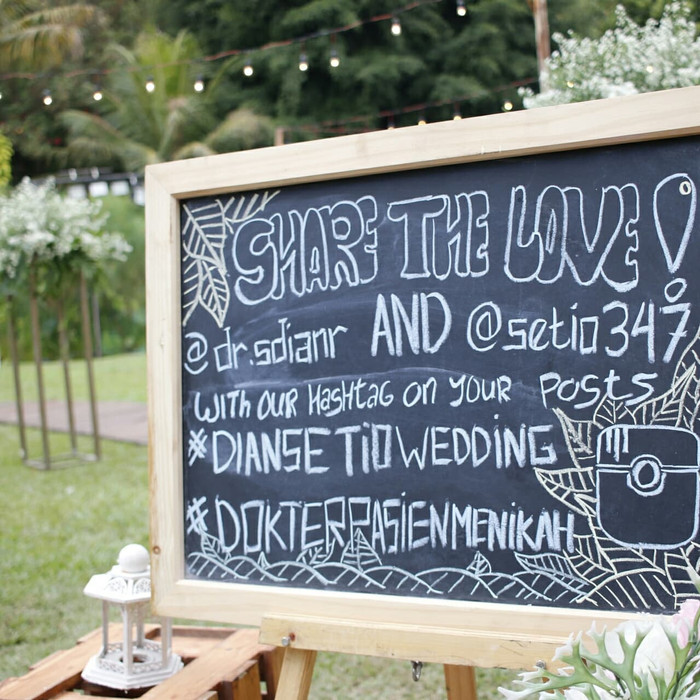 SHARE THE LOVE!
@dr.sdianr AND @setio347
WITH OUR HASHTAG ON YOUR POSTS
#DIANSETIOWEDDING
#DOKTERPASIENMENIKAH